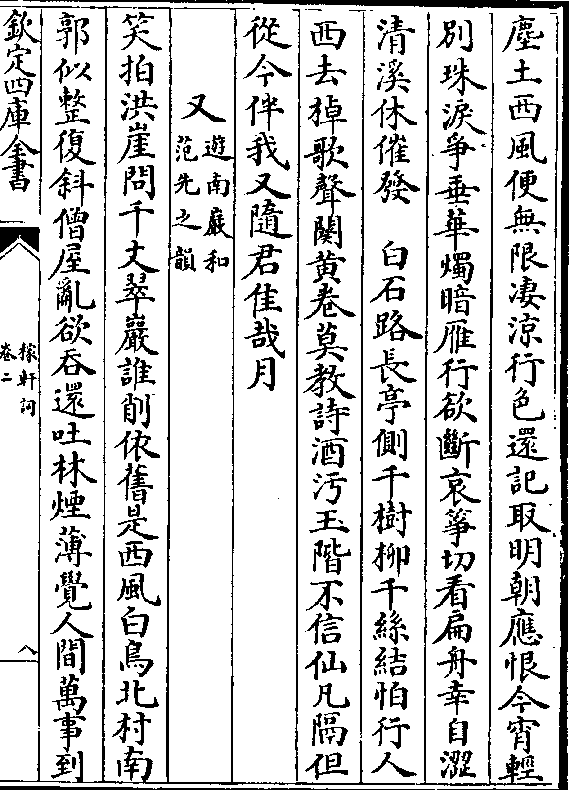 塵土西風便無限凄涼行色還記取明朝應恨今宵輕
別珠淚爭垂華燭暗雁行欲斷哀箏切看扁舟幸自澀
清溪休催發　白石路長亭側千樹柳千絲結怕行人
西去棹歌聲闋黄卷莫教詩酒汚玉階不信仙凡隔但
從今伴我又隨君佳哉月
又
遊南巖和
范先之韻
笑拍洪崖問千丈翠巖誰削依舊是西風白鳥北村南
郭似整復斜僧屋亂欲吞還吐林煙薄覺人間萬事到
欽定四庫全書
稼軒詞
卷二
八